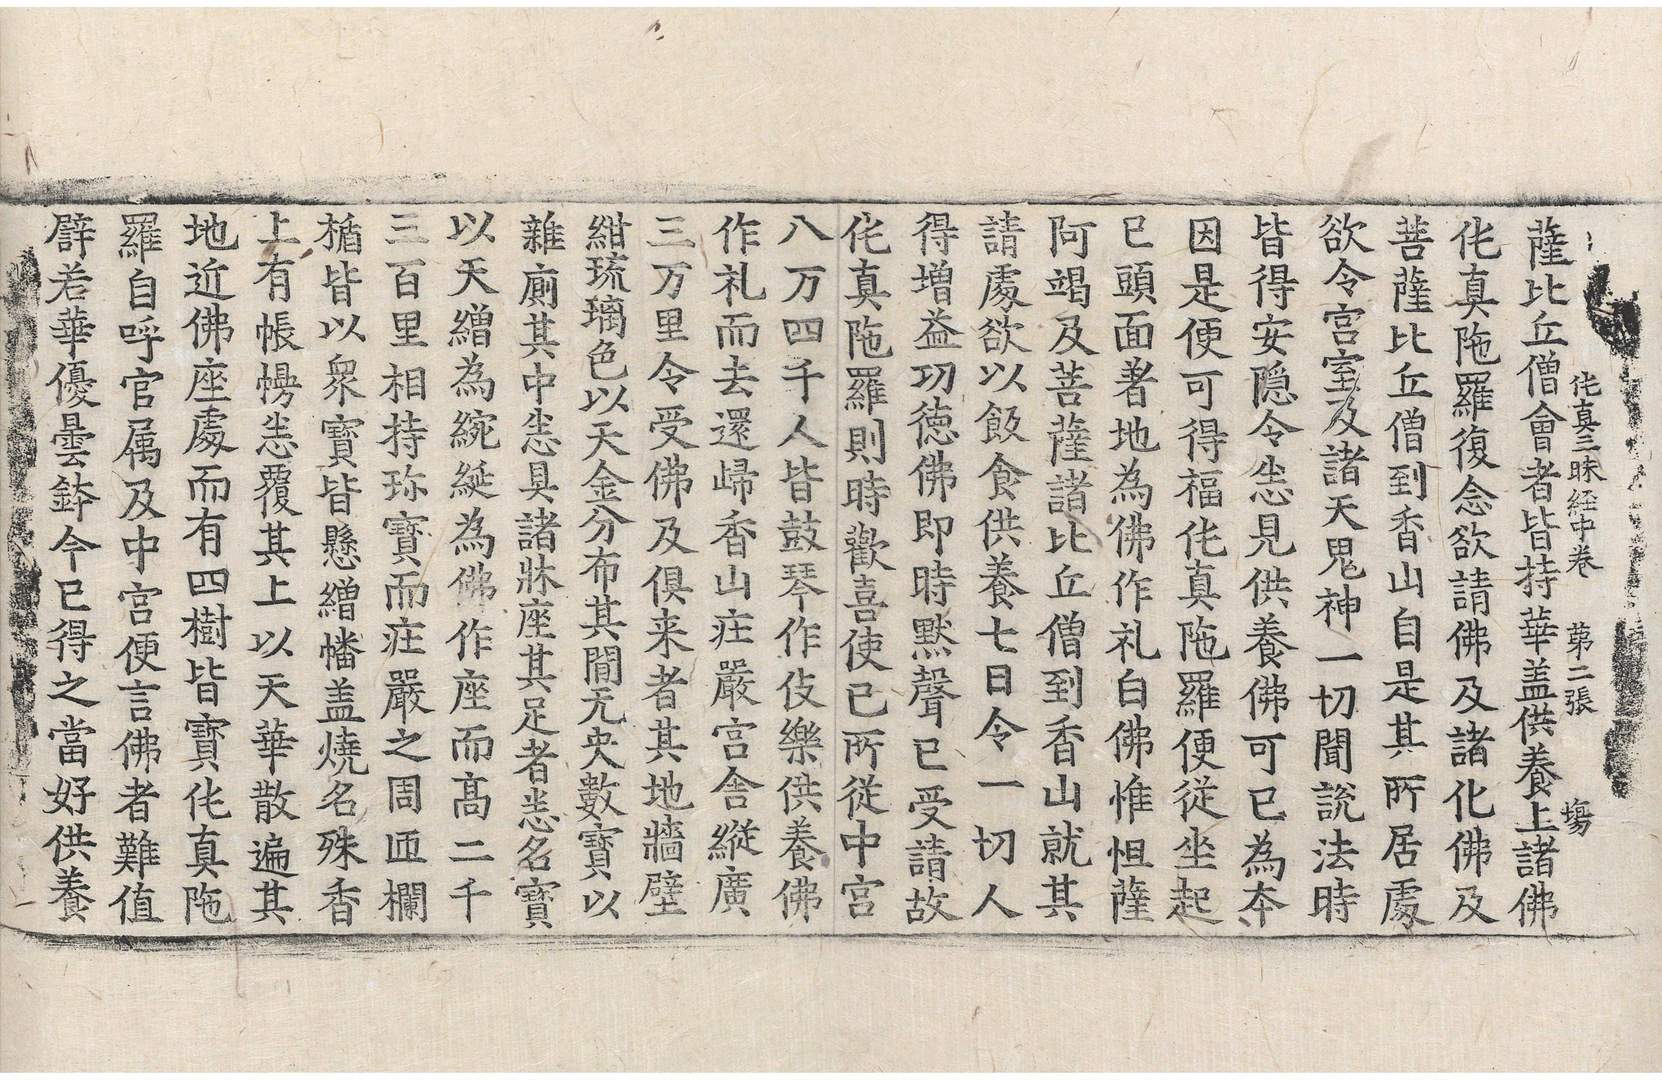 佗真三昧経中卷 第二張 塲
薩比丘僧會者皆持華盖供養上諸佛
佗真陁羅復念欲請佛及諸化佛及
菩薩比丘僧到香山自是其所居處
欲令宫室及諸天鬼神一切聞說法時
皆得安隠令悉見供養佛可已為夲
因是便可得福佗真陁羅便従坐起
已頭面著地為佛作礼白佛惟怛薩
阿竭及菩薩諸比丘僧到香山就其
請處欲以飯食供養七日令一切人
得增益功徳佛即時默聲已受請故
佗真陁羅則時歡喜使已所従中宫
八万四千人皆鼓琴作伎樂供養佛
作礼而去還歸香山疘嚴宫舍縱廣
三万里令受佛及俱来者其地牆壁
紺琉璃色以天金分布其間无央數寶以
雜廁其中悉具諸牀座其足者悉名寶
以天繒為綩綖為佛作座而高二千
三百里相持珎寶而疘嚴之周匝欄
楯皆以眾寶皆懸繒幡盖燒名殊香
上有帳幔悉覆其上以天華散遍其
地近佛座處而有四樹皆寶佗真陁
羅自呼官属及中宫便言佛者難值
辟若華優曇鉢今已得之當好供養